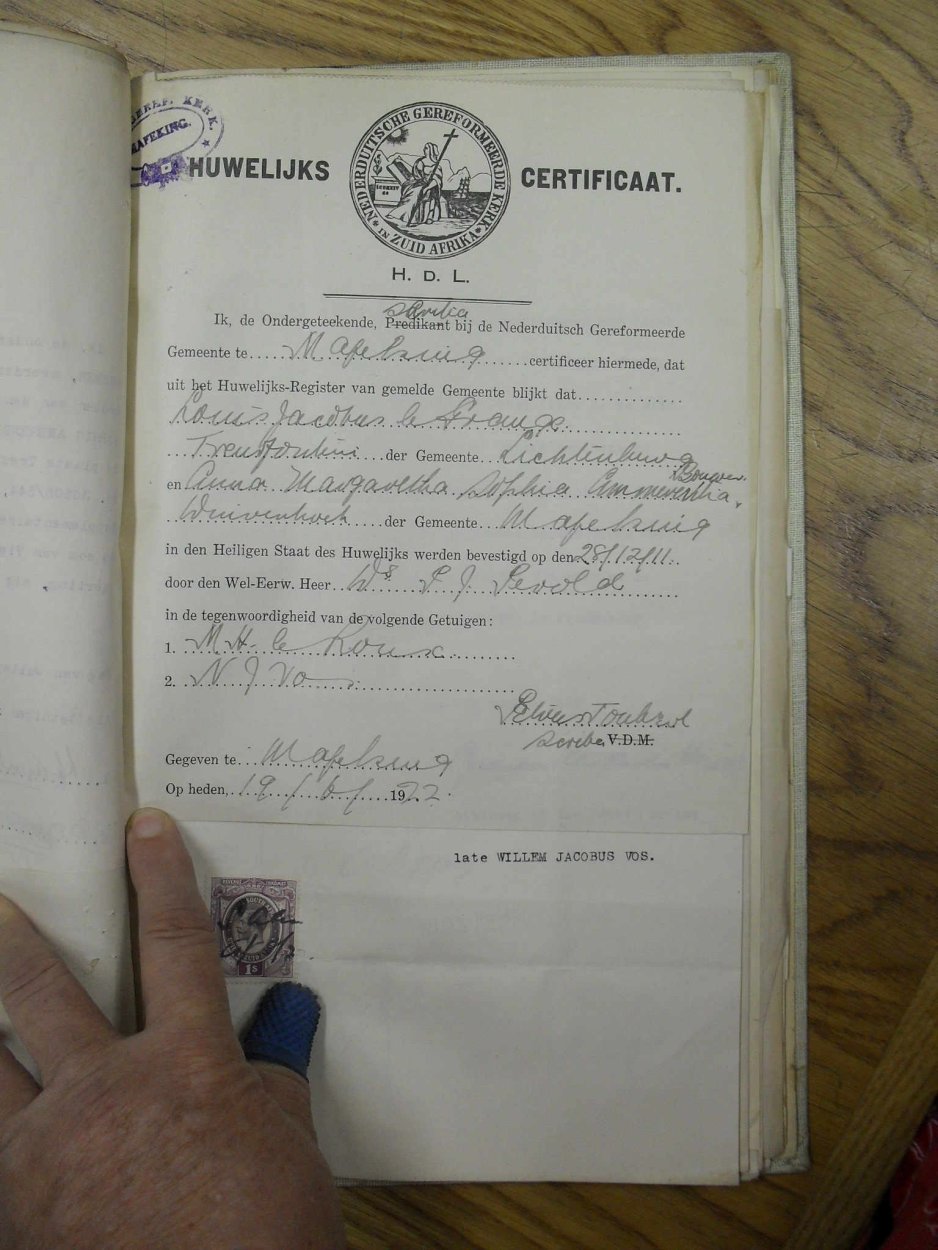 GEREF. KERK.
MAFEKING.
HUWELIJKS CERTIFICAAT.
NEDERDUITSCHE GEREFORMEERDE KERK
IN ZUID AFRIKA
H. D. L.
Scriba
Ik, de Ondergeteekende, Predikant bij de Nederduitsch Gereformeerde
Gemeente te Mafeking certificeer hiermede, dat
uit het Huwelijks-Register van gemelde Gemeente blijkt dat
Louis Jacobus le Grange
der Gemeente Lichtenburg
en Anna Margaretha Sophia
der Gemeente Mafeking
in den Heiligen Staat des Huwelijks werden bevestigd op den 28/12/11.
door den Wel-Eerw. Heer Ds
in de tegenwoordigheid van de volgende Getuigen:
1. M H le Roux
2. N J Vos
scriba V.D.M.
Gegeven te Mafeking
Op heden, 19/6/1922.
late WILLEM JACOBUS VOS.
1s